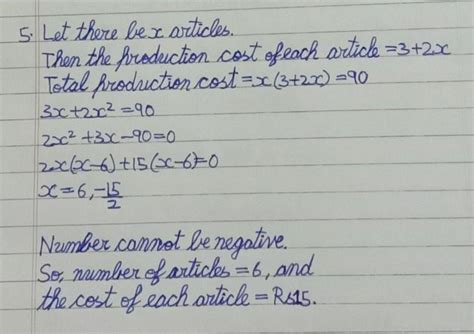 5. Let there be x articles.
Then the production cost of each article = 3+2x
Total production cost = x(3+2x) = 90
3x+2x² = 90
2x² +3x-90=0
2x(x-6)+15(x-6)=0
x = 6, -15/2
Number cannot be negative.
So, number of articles = 6, and
the cost of each article = Rs15.